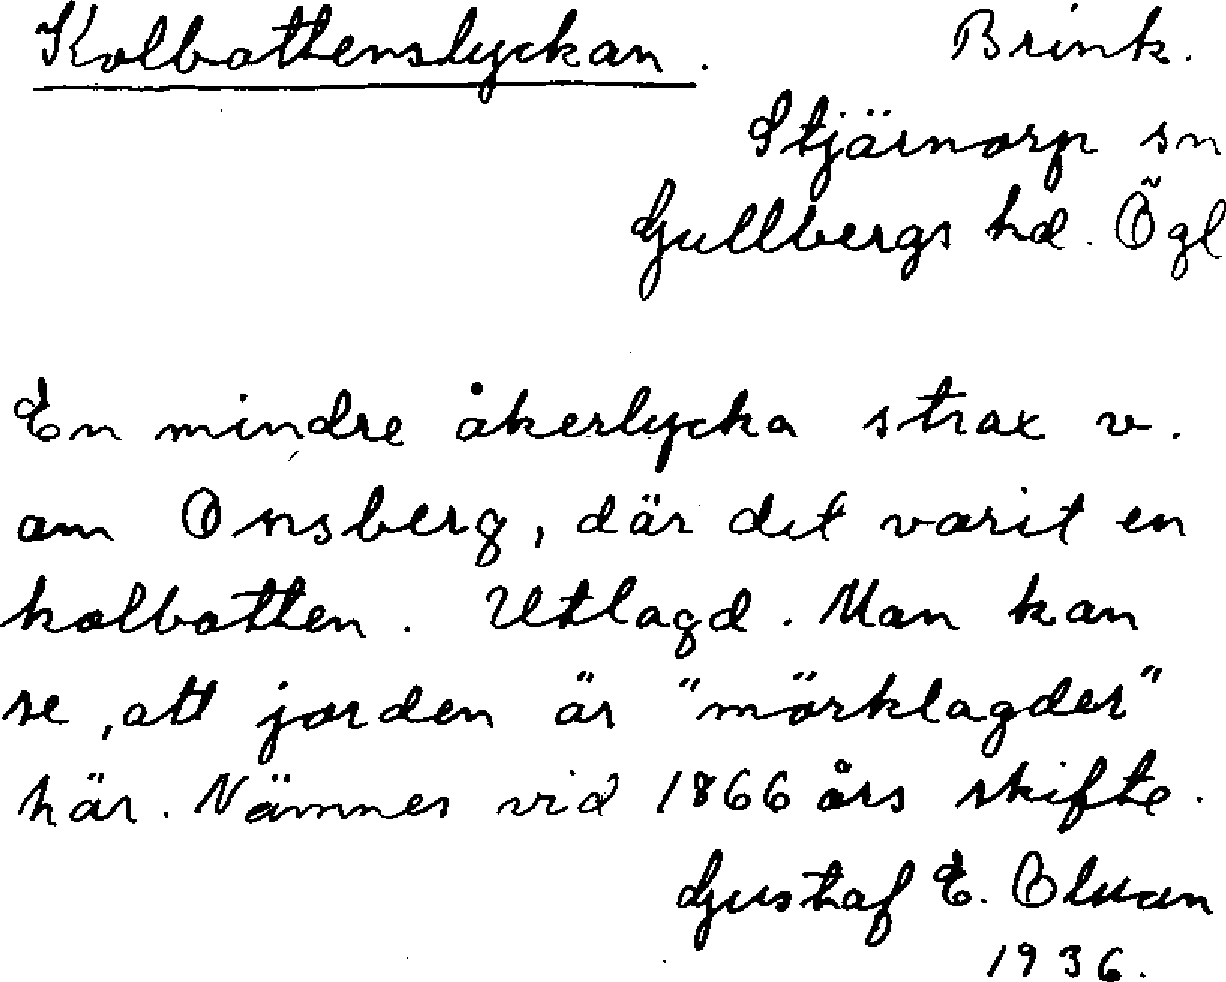 Kolbottenslyckan. Brink.
Stjärnorp sn
Gullbergs hd. Ögl
En mindre åkerlycka strax v.
om Onsberg, där det varit en
kolbotten. Utlagd. Man kan
se, att jorden är "mörklagder"
här. Nämnes vid 1866 års skifte.
Gustaf E.
1936.